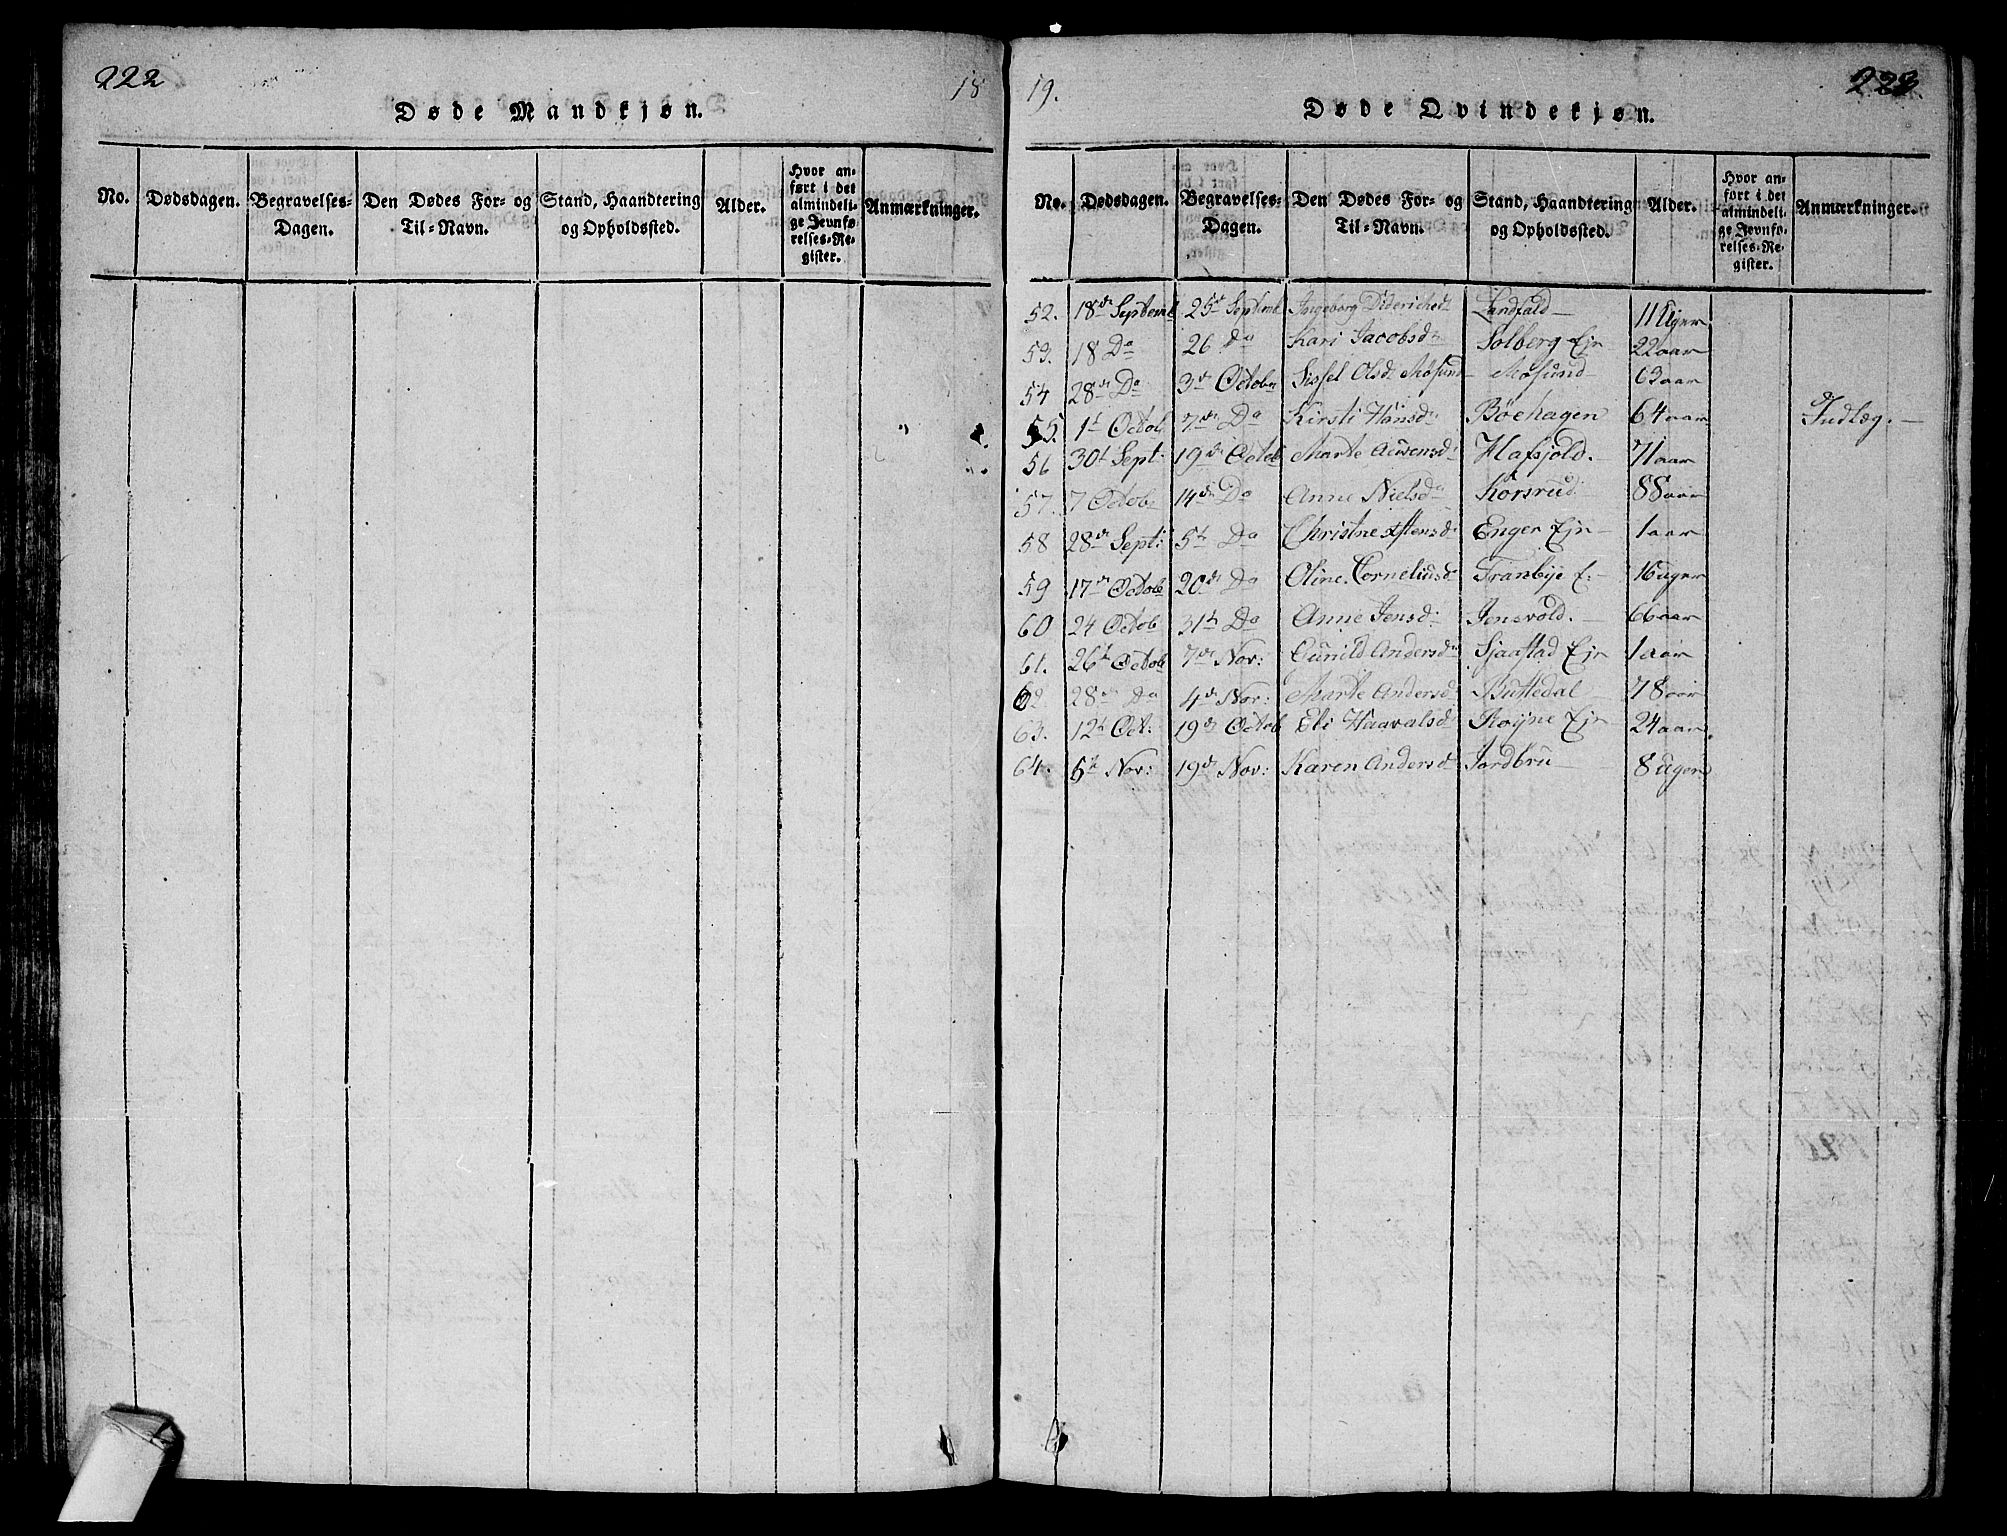 222
18
Døde Mandkjøn.
No. Dødsdagen. Begravelses-Dagen. Den Dødes For- og Til-Navn. Stand, Haandtering og Opholdssted. Alder. Hvor anført i det almindelige Jevnførelses-Register. Anmærkninger.
19.
223
Døde Qvindekjøn.
No. Dødsdagen. Begravelses-Dagen. Den Dødes For- og Til-Navn. Stand, Haandtering og Opholdssted. Alder. Hvor anført i det almindelige Jevnførelses-Register. Anmærkninger.
52. 18de Septemb 25de Septemb Ingeborg Diderichsd Landfald 11 Uger
53. 18 Do 26 Do Kari Jacobsd Solberg Ejr 22 aar
54 28de Do 3de Octobr Sissel Olsd Mosund Mosund 63 aar
55. 1t Octob 7de Do Kirsti Hansd Bøehagen 64 aar Indlæg.
56 30t Sept: 19de Octob Marte Auvensd Hafsjold. 71 aar
57. 7 Octobr 14de Do Anne Nielsd Korsrud 88 aar
58 28de Sept: 5t Do Christne Astensd Enger Ejr 1 aar
59 17de Octob 20de Do Oline Corneliusd Tranbye E: 16 uger
60 24 Octob 31t Do Anne Jensd Jensvold. 66 aar
61. 26t Octob 7de Nov: Gunild Andersd Sjaastad Ejr 1 aar
62. 28de Do 4de Nov: Marte Andersd Buttedal 78 aar
63. 12t Oct: 19de Octob Eli Haavalsd Røyne Ejr 24 aar.
64. 5t Nov: 19de Nov: Karen Andersd Jordbru 8 uger